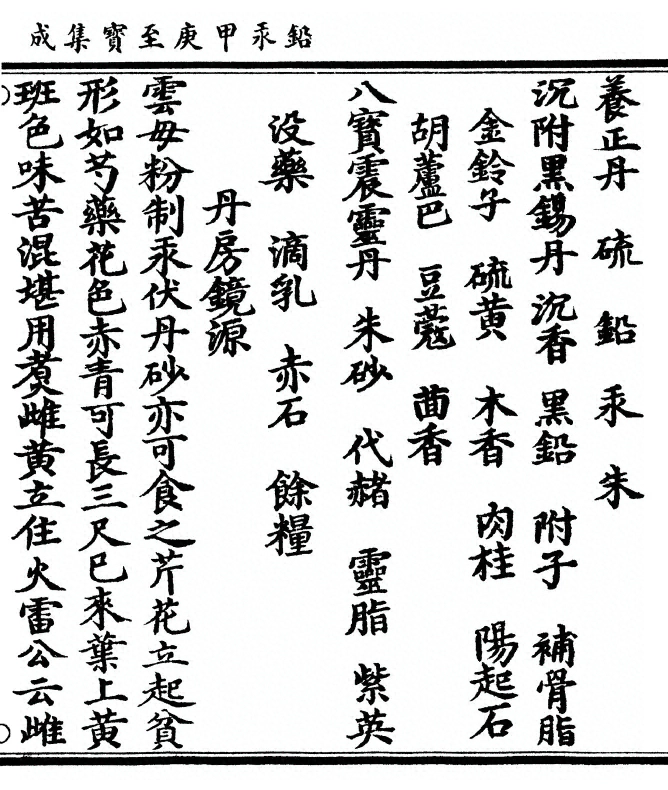 鉛汞甲庚至寶集成
養正丹 硫 鉛 汞 朱
沉附黑錫丹 沉香 黑鉛 附子 補骨脂
金鈴子 硫黄 木香 肉桂 陽起石
胡蘆巴 豆蔻 茴香
八寶震靈丹 朱砂 代赭 靈脂 紫英
没藥 滴乳 赤石 餘糧
丹房鏡源
雲母粉制汞伏丹砂亦可食之芹花立起貧
形如芍藥花色赤青可長三尺巳來葉上黄
班色味苦混堪用煑雌黄立住火雷公云雌